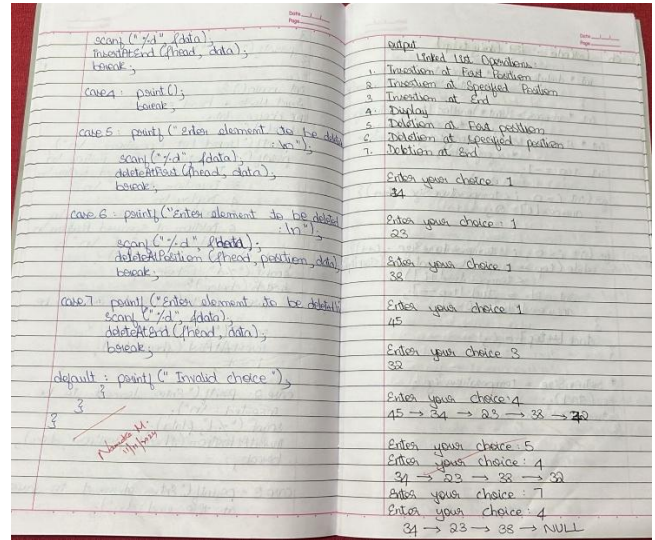 scanf("%d", &data);
InsertAtEnd(&head, data);
break;
case 4: print();
break;
case 5: printf("Enter element to be deleted
:\n");
scanf("%d", &data);
deleteAtFirst(&head, data);
break;
case 6: printf("Enter element to be deleted
:\n");
scanf("%d", &data);
deleteAtPosition(&head, position, data);
break;
case 7: printf("Enter element to be deleted\n");
scanf("%d", &data);
deleteAtEnd(&head, data);
break;
default: printf("Invalid choice");
}
}
}
Date
Page
Date
Page
output
Linked List Operations:
1. Insertion at First Position
2. Insertion at Specified Position
3. Insertion at End
4. Display
5. Deletion at First position
6. Deletion at specified position
7. Deletion at End
Enter your choice: 1
34
Enter your choice: 1
23
Enter your choice 1
38
Enter your choice 1
45
Enter your choice 3
32
Enter your choice: 4
45 → 34 → 23 → 38 → 32
Enter your choice: 5
Enter your choice: 4
34 → 23 → 38 → 32
Enter your choice: 7
Enter your choice: 4
34 → 23 → 38 → NULL